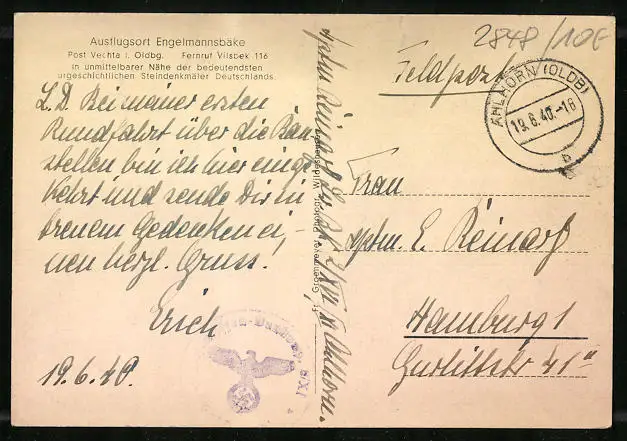 Ausflugsort Engelmannsbäke
Post Vechta i. Oldbg. Fernruf Visbek 116
in unmittelbarer Nähe der bedeutendsten
urgeschichtlichen Steindenkmäler Deutschlands.
L. D. Bei meiner ersten
Rundfahrt über die Bau-
stellen bin ich hier einge-
kehrt und sende Dir in
treuem Gedenken ei-
nen herzl. Gruss!
Erich
19.6.40.
2848/10E
Feldpost
AHLHORN (OLDB)
19.6.40.-18
b
Frau
Hptm. E. Reinarf
Hamburg 1
Gurlittstr 41"
Hptm Reinarf
Ahlhorn.